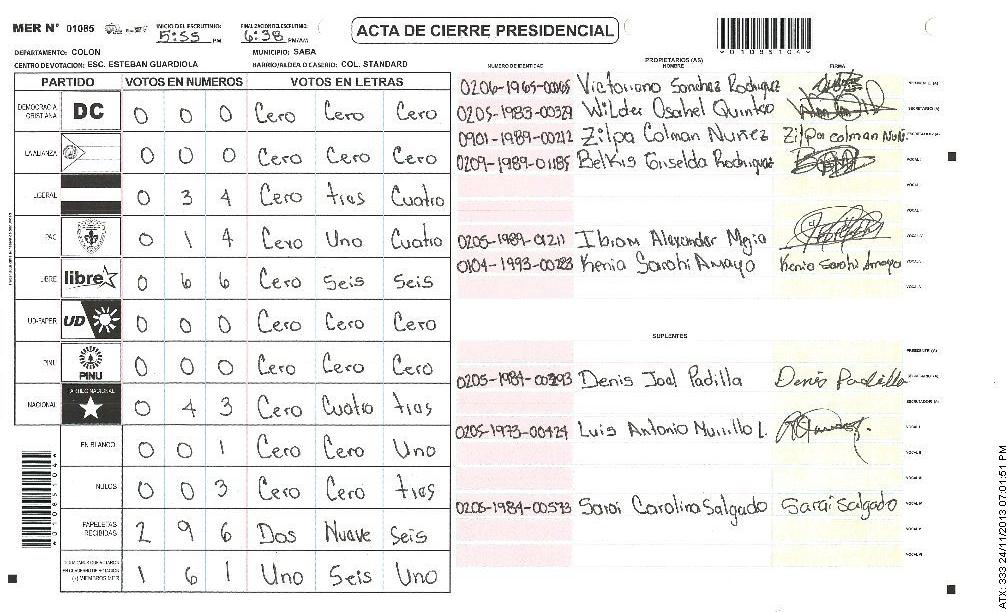 MER Nº 01085
INICIO DEL ESCRUTINIO: 5:55 PM
FINALIZACION ESCRUTINIO: 6:38 PM/AM
ACTA DE CIERRE PRESIDENCIAL
*01085104*
DEPARTAMENTO: COLON
MUNICIPIO: SABA
CENTRO DE VOTACION: ESC. ESTEBAN GUARDIOLA
BARRIO/ALDEA O CASERIO: COL. STANDARD
PARTIDO VOTOS EN NUMEROS VOTOS EN LETRAS
DEMOCRACIA CRISTIANA DC 0 0 0 Cero Cero Cero
LA ALIANZA 0 0 0 Cero Cero Cero
LIBERAL 0 3 4 Cero tres Cuatro
PAC 0 1 4 Cero Uno Cuatro
LIBRE libre 0 6 6 Cero Seis Seis
UD-FAPER UD 0 0 0 Cero Cero Cero
PINU PINU 0 0 0 Cero Cero Cero
NACIONAL PARTIDO NACIONAL 0 4 3 Cero Cuatro tres
EN BLANCO 0 0 1 Cero Cero Uno
NULOS 0 0 3 Cero Cero tres
PAPELETAS RECIBIDAS 2 9 6 Dos Nueve Seis
(+) MIEMBROS MER 1 6 1 Uno Seis Uno
*01085104*
PROPIETARIOS (AS)
NUMERO DE IDENTIDAD NOMBRE FIRMA
0206-1965-00065 Victoriano Sanchez Rodriguez
0205-1983-00329 Wilder Osabel Quintero
0901-1989-00212 Zilpa Colman Nuñez Zilpa Colman Nuñ.
0209-1989-01185 Belkis Griselda Rodriguez
0205-1989-01211 Ibram Alexander Mejia
0104-1993-00283 Kenia Sarahi Amaya Kenia Sarahi Amaya
SUPLENTES
0205-1984-00393 Denis Joel Padilla Denis Padilla
0205-1973-00424 Luis Antonio Murillo L.
0205-1984-00573 Sarai Carolina Salgado Sarai Salgado
ATX: 333 24/11/2013 07:01:51 PM